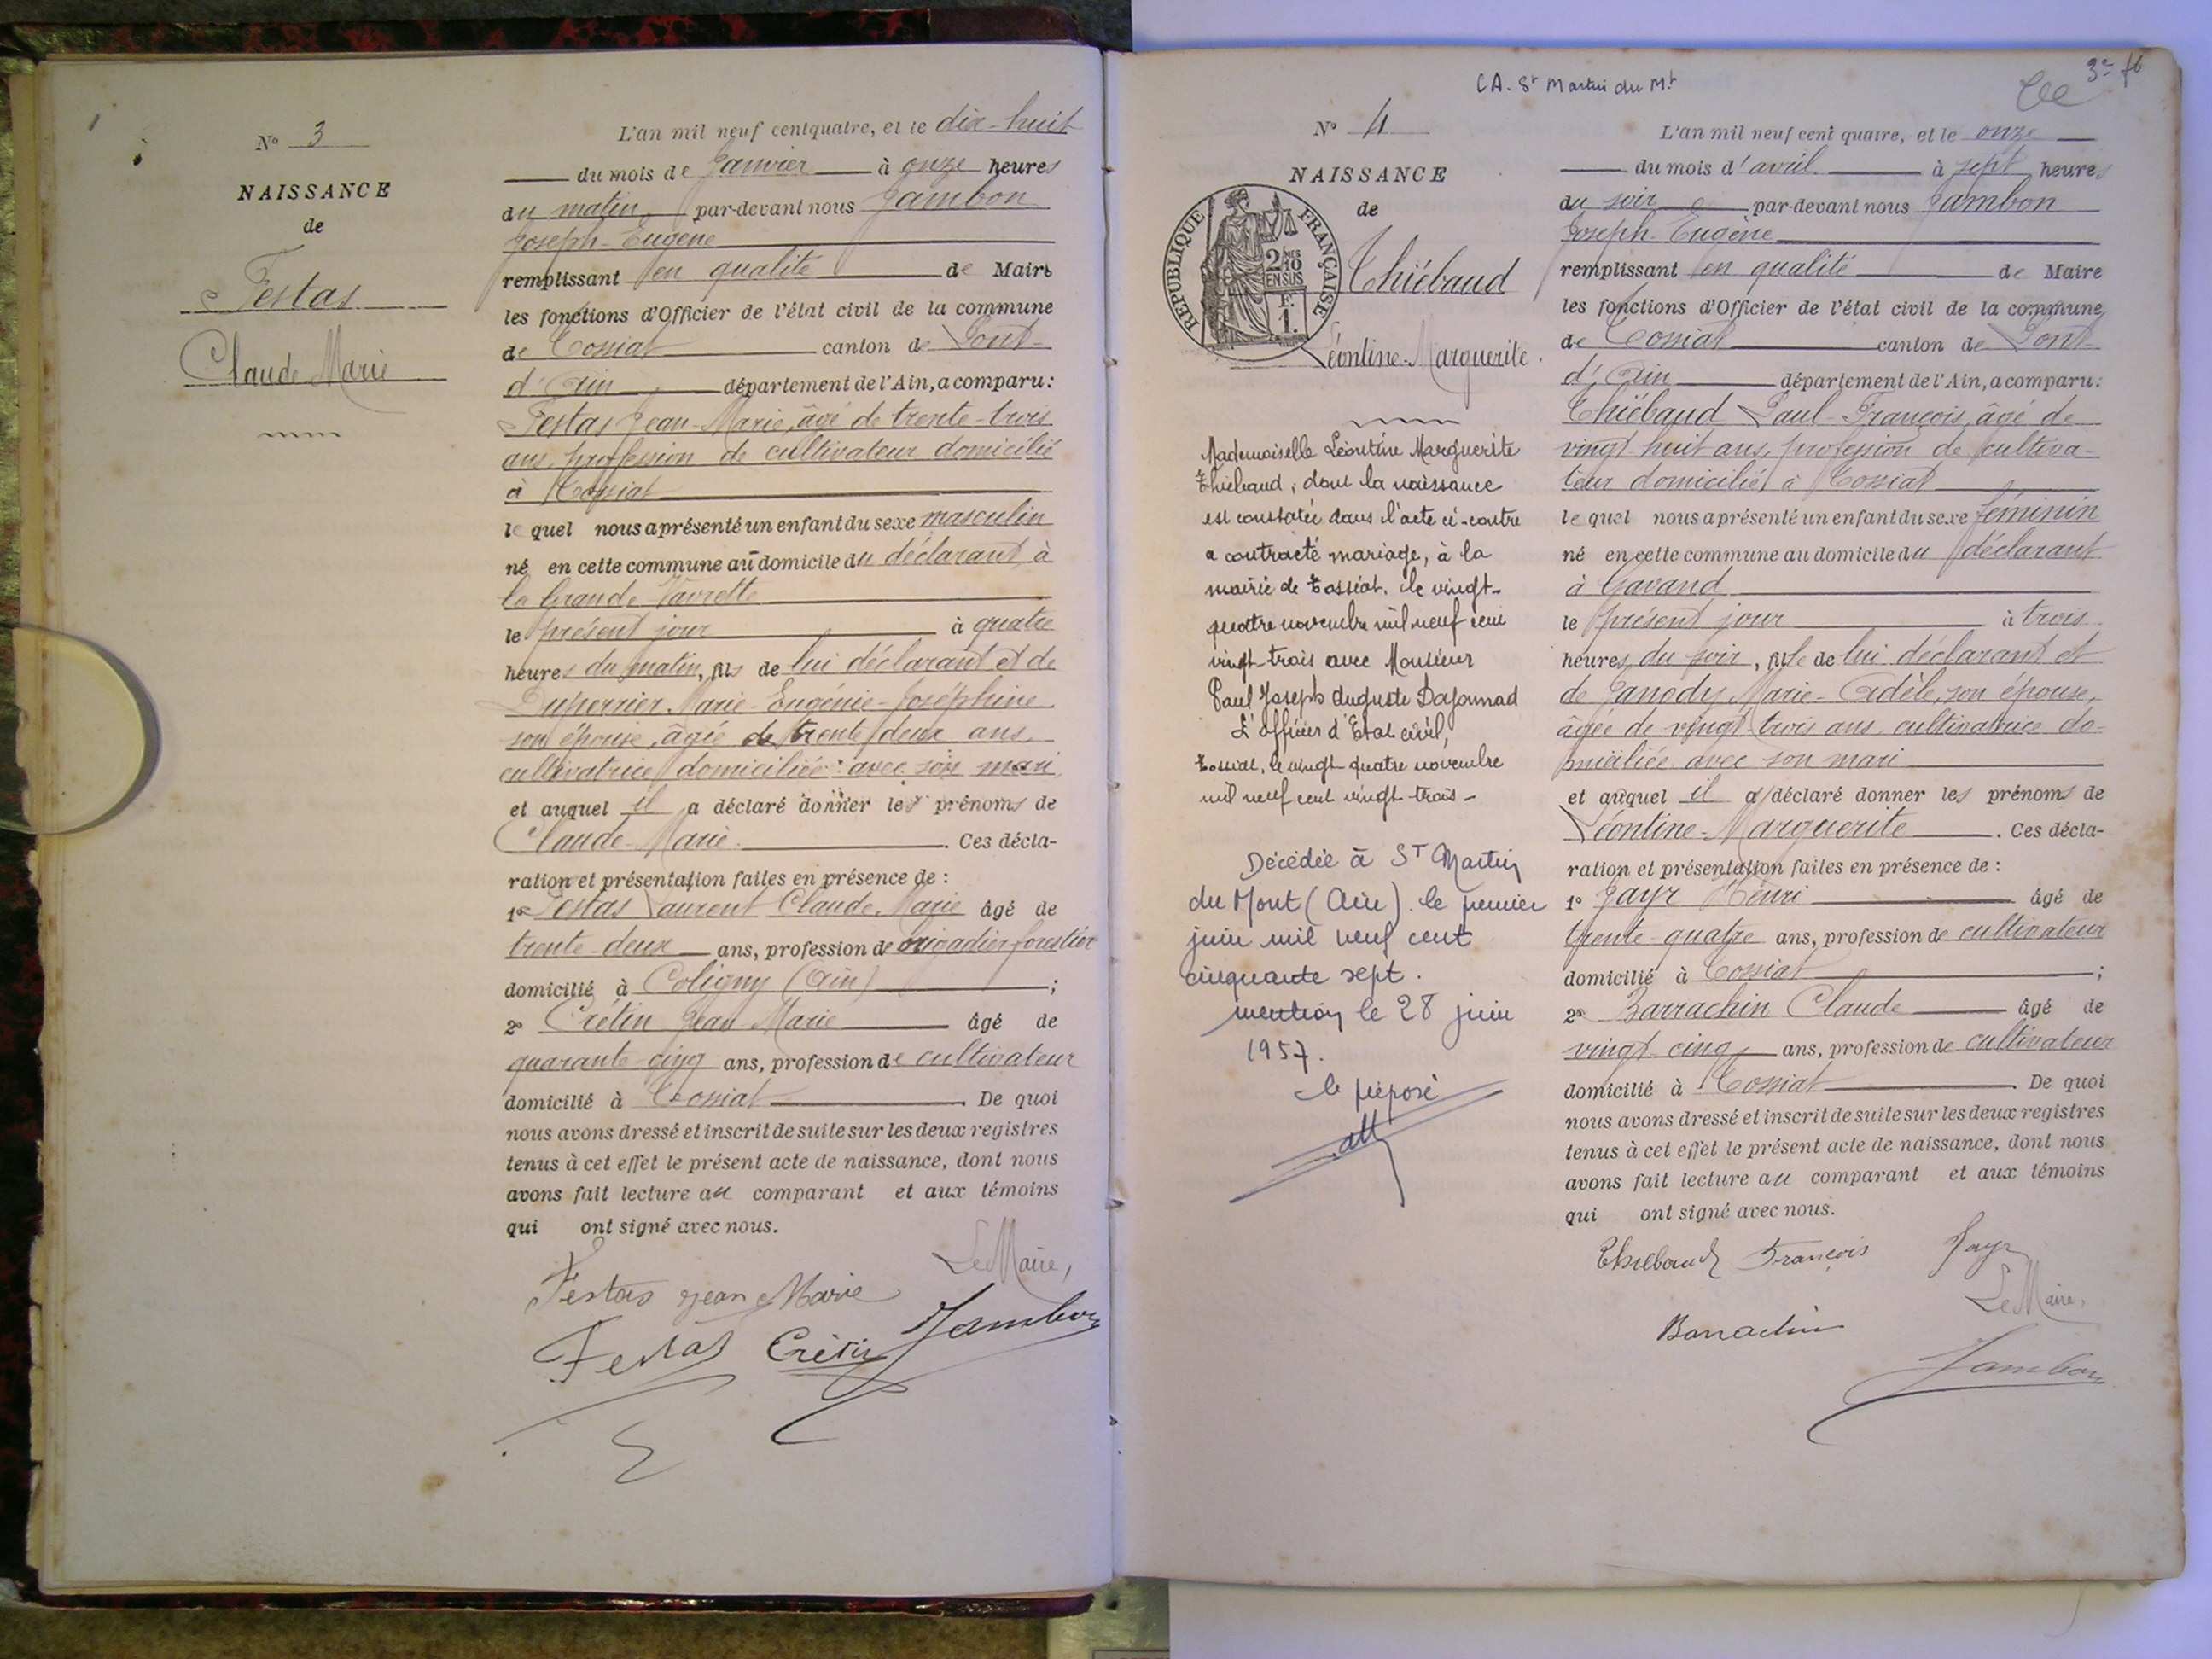 N° 3
NAISSANCE
de
Festas
Claude Marie
L'an mil neuf cent quatre, et le dix-huit
du mois de Janvier à onze heures
du matin par-devant nous Jambon
Joseph-Eugène
remplissant en qualité de Maire
les fonctions d'Officier de l'état civil de la commune
de Tossiat canton de Pont-
d'Ain département de l'Ain, a comparu:
Festas Jean-Marie, âgé de trente-trois
ans, profession de cultivateur domicilié
à Tossiat
le quel nous a présenté un enfant du sexe masculin
né en cette commune au domicile du déclarant, à
la Grande
le présent jour à quatre
heures du matin, fils de lui déclarant et de
Duperrier Marie-Eugénie-Joséphine
son épouse, âgée de trente deux ans,
cultivatrice domiciliée avec son mari
et auquel il a déclaré donner les prénoms de
Claude-Marie. Ces décla-
ration et présentation faites en présence de :
1° Festas Laurent Claude Marie âgé de
trente-deux ans, profession de brigadier forestier
domicilié à Coligny (Ain) ;
2° Crétin Jean Marie âgé de
quarante-cinq ans, profession de cultivateur
domicilié à Tossiat. De quoi
nous avons dressé et inscrit de suite sur les deux registres
tenus à cet effet le présent acte de naissance, dont nous
avons fait lecture au comparant et aux témoins
qui ont signé avec nous.
Le Maire,
Festas Jean Marie
Festas Crétin Jambon
CA. St Martin du Mt
3e
N° 4
NAISSANCE
de
REPUBLIQUE FRANÇAISE
2 MES
10
EN SUS
F.
1.
Thiébaud
Léontine-Marguerite.
Mademoiselle Léontine Marguerite
Thiébaud, dont la naissance
est constatée dans l'acte ci-contre
a contracté mariage, à la
mairie de Tossiat, le vingt-
quatre novembre mil neuf cent
vingt-trois avec Monsieur
Paul Joseph Auguste
L'officier d'Etat civil,
Tossiat, le vingt quatre novembre
mil neuf cent vingt-trois-
Décédée à ST Martin
du Mont (Ain). le premier
juin mil neuf cent
cinquante sept.
mention le 28 juin
1957.
le préposé
L'an mil neuf cent quatre, et le onze
du mois d'avril à sept heures
du soir par-devant nous Jambon
Joseph-Eugène
remplissant en qualité de Maire
les fonctions d'Officier de l'état civil de la commune
de Tossiat canton de Pont-
d'Ain département de l'Ain, a comparu:
Thiébaud Paul-François, âgé de
vingt huit ans, profession de cultiva-
teur domicilié à Tossiat
le quel nous a présenté un enfant du sexe féminin
né en cette commune au domicile du déclarant
à Gavand
le présent jour à trois
heures du soir, fille de lui déclarant et
de Janody Marie-Adèle, son épouse,
âgée de vingt trois ans, cultivatrice do-
miciliée avec son mari
et auquel il a déclaré donner les prénoms de
Léontine-Marguerite. Ces décla-
ration et présentation faites en présence de :
1° Jayr Henri âgé de
trente-quatre ans, profession de cultivateur
domicilié à Tossiat ;
2° Barrachin Claude âgé de
vingt-cinq ans, profession de cultivateur
domicilié à Tossiat. De quoi
nous avons dressé et inscrit de suite sur les deux registres
tenus à cet effet le présent acte de naissance, dont nous
avons fait lecture au comparant et aux témoins
qui ont signé avec nous.
Thiébaud François Jayr
Le Maire,
Barrachin
Jambon